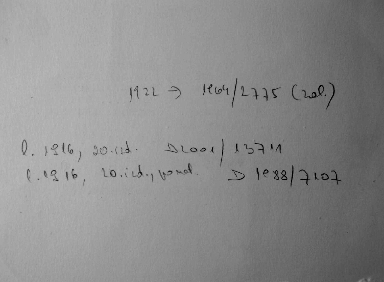 1922 → 1964/2775 (zal.)
l. 1916, 20.izd. D2001/13711
l. 1916, 20.izd., D 1988/7107